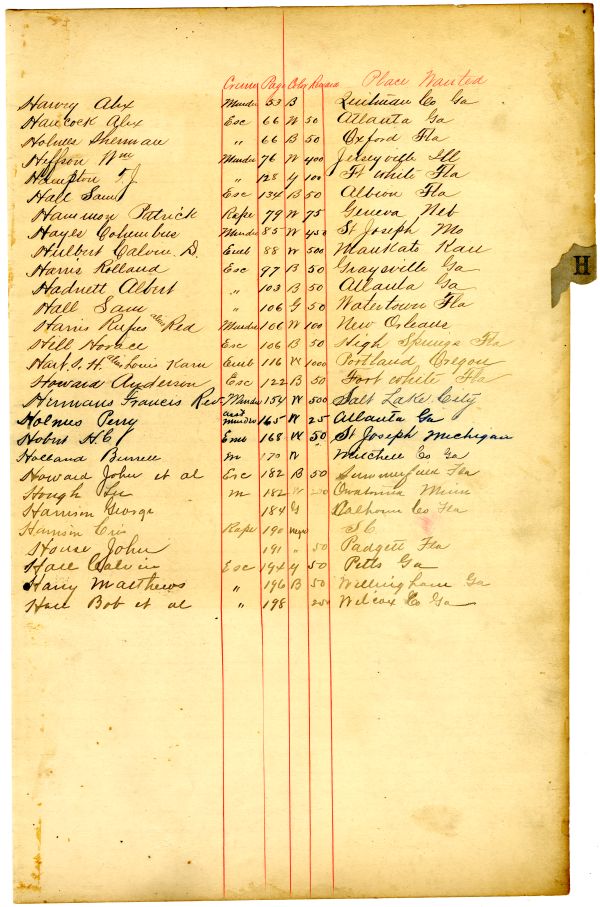 Crime Page Color Reward Place Wanted
Harvey Alex Murder 53 B Quitman Co Ga
Hancock Alex Esc 66 W 50 Atlanta Ga
Holmes Sherman " 66 B 50 Oxford Fla
Heffson Wm Murder 76 W 400 Jerseyville Ill
Hampton T J " 128 y 100 Ft White Fla
Hall Sam Esc 134 B 50 Albion Fla
Hammon Patrick Rape 79 W 75 Geneva Neb
Hayes Columbus Murder 85 W 450 St Joseph Mo
Hulbert Calvin D. Emb 88 W 500 Mankato Kan
Harris Rolland Esc 97 B 50 Graysville Ga
Hadnett Albert " 103 B 50 Atlanta Ga
Hall Sam " 106 G 50 Watertown Fla
Harris Rufus alias Red Murder 106 W 100 New Orleans
Hill Horace Esc 106 B 50 High Springs Fla
Hart S. H. alias Louis Karn Emb 116 W 1000 Portland Oregon
Howard Anderson Esc 122 B 50 Fort White Fla
Hermans Francis Rev. Murder 154 W 500 Salt Lake City
Holmes Perry asst murder 165 W 25 Atlanta Ga
Hobst H C Emb 168 W 50 St Joseph Michigan
Holland Burrell m 170 W Mitchell Co Ga
Howard John et al Esc 182 B 50 Summerfield Fla
Hough m 182 W 200 Owatonna Minn
Harrison George 184 Calhoun Co Fla
Harrison Cris Rape 190 negro S C
House John 191 " 50 Padgett Fla
Hall Calvin Esc 194 y 50 Pitts Ga
Harry Matthews " 196 B 50 Willingham Ga
Hall Bob et al " 198 250 Wilcox Co Ga
H